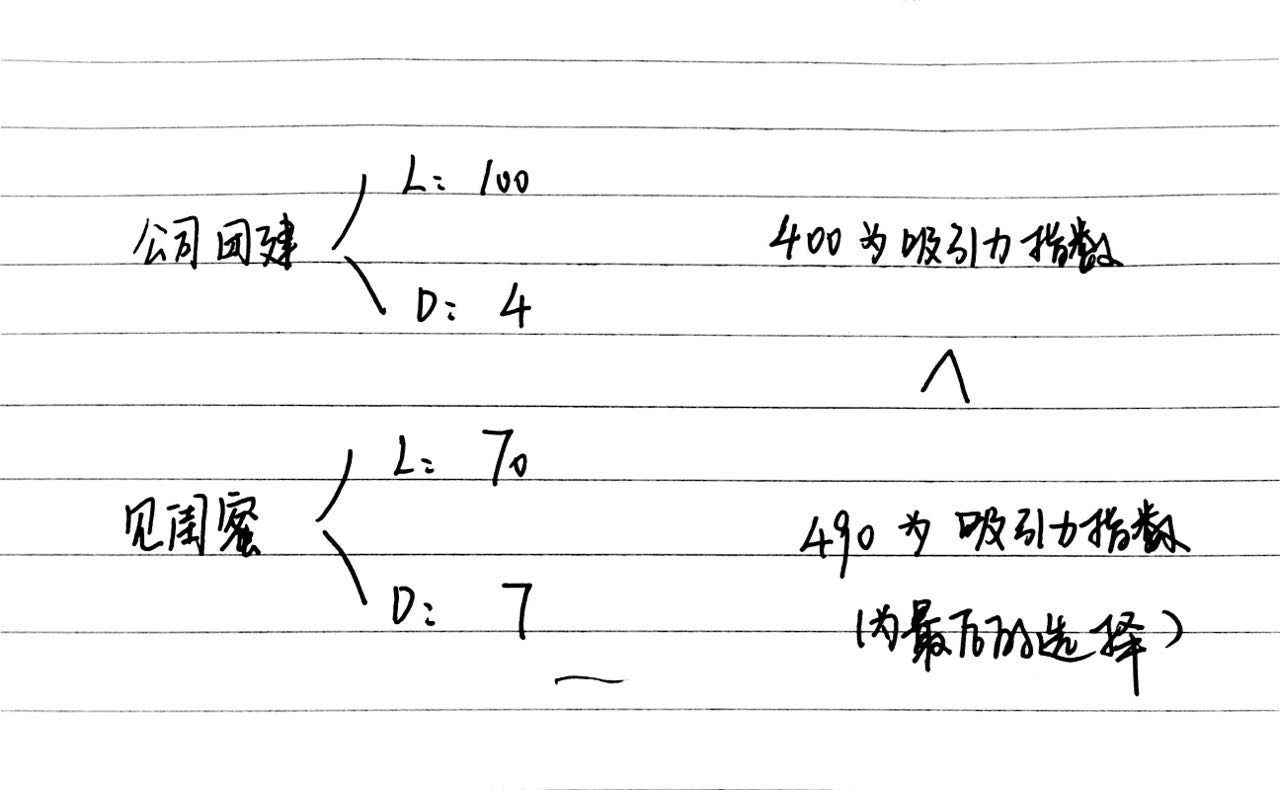 L: 100
公司团建
400为吸引力指数
D: 4
∧
L: 70
见闺蜜
490为吸引力指数
D: 7
(为最后的选择)